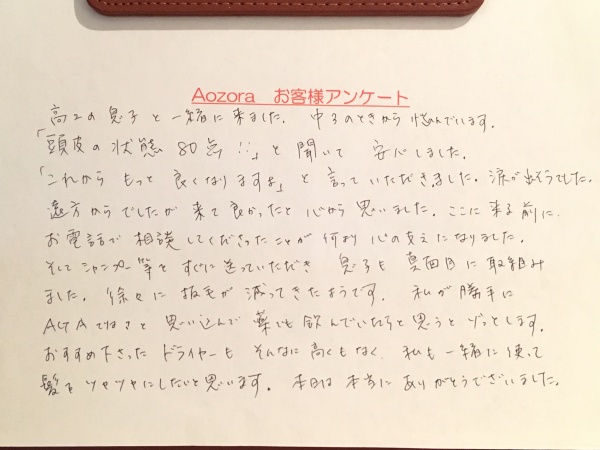 Aozora お客様アンケート
高2の息子と一緒に来ました。中3のときから悩んでいます。
「頭皮の状態80点!!」と聞いて安心しました。
「これからもっと良くなりますよ」と言っていただきました。涙が出そうでした。
遠方からでしたが来て良かったと心から思いました。ここに来る前に、
お電話で相談してくださったことが何より心の支えになりました。
そしてシャンプー等をすぐに送っていただき息子も真面目に取組み
ました。徐々に抜毛が減ってきたようです。私が勝手に
AGAではと思い込んで薬でも飲んでいたらと思うとゾッとします。
おすすめ下さったドライヤーもそんなに高くもなく、私も一緒に使って
髪をツヤツヤにしたいと思います。本日は本当にありがとうございました。